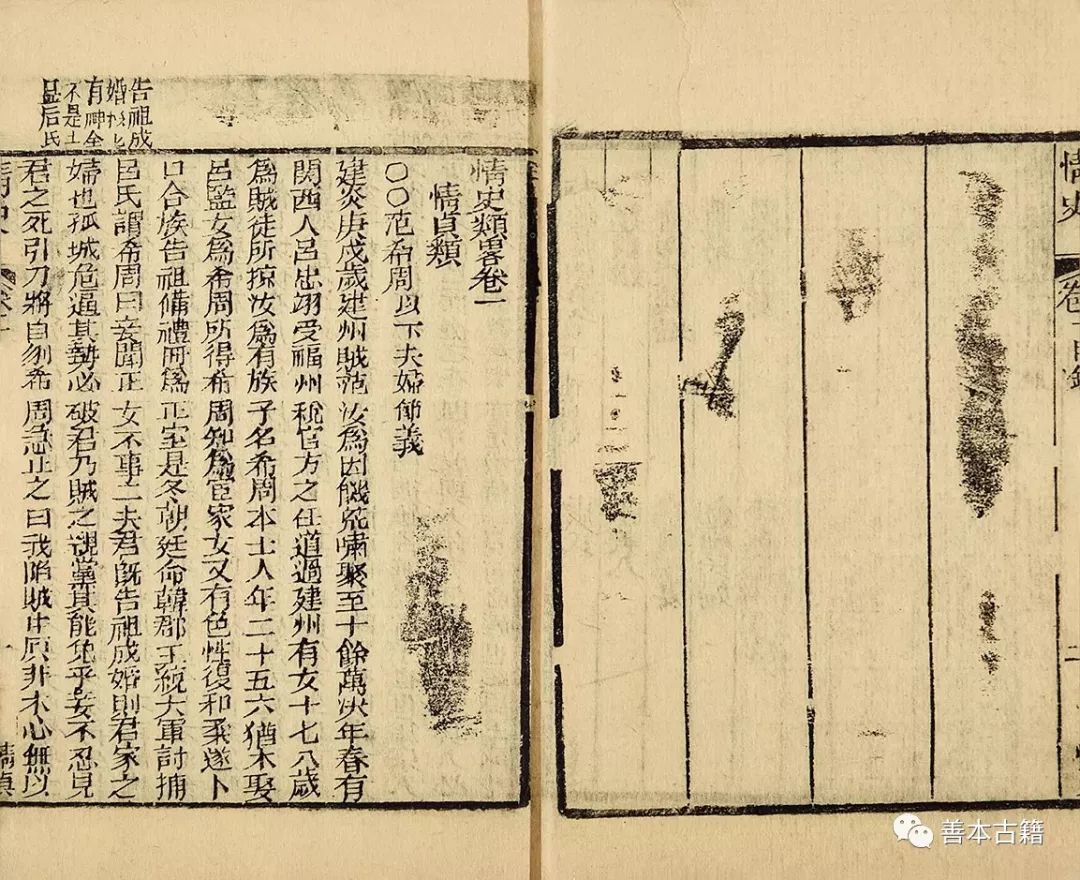 情史
卷一目錄
二
情史類畧卷一
情貞類
○○范希周以下夫婦節義
建炎庚戌歲建州賊范汝為因饑荒嘯聚至十餘萬次年春有
関西人呂忠翊受福州稅官方之任道過建州有女十七八歲
為賊徒所掠汝為有族子名希周本士人年二十五六猶未娶
呂監女為希周所得希周知為宦家女又有色性復和柔遂卜
日合族告祖備禮冊為正室是冬朝廷命韓郡王統大軍討捕
呂氏謂希周曰妾聞正女不事二夫君既告祖成婚則君家之
婦也孤城危逼其勢必破君乃賊之親黨其能免乎妾不忍見
君之死引刀將自刎希周急止之曰我陷賊中原非本心無以
告祖成
婚
有
不是
呂氏
情史
卷一
情貞
善本古籍